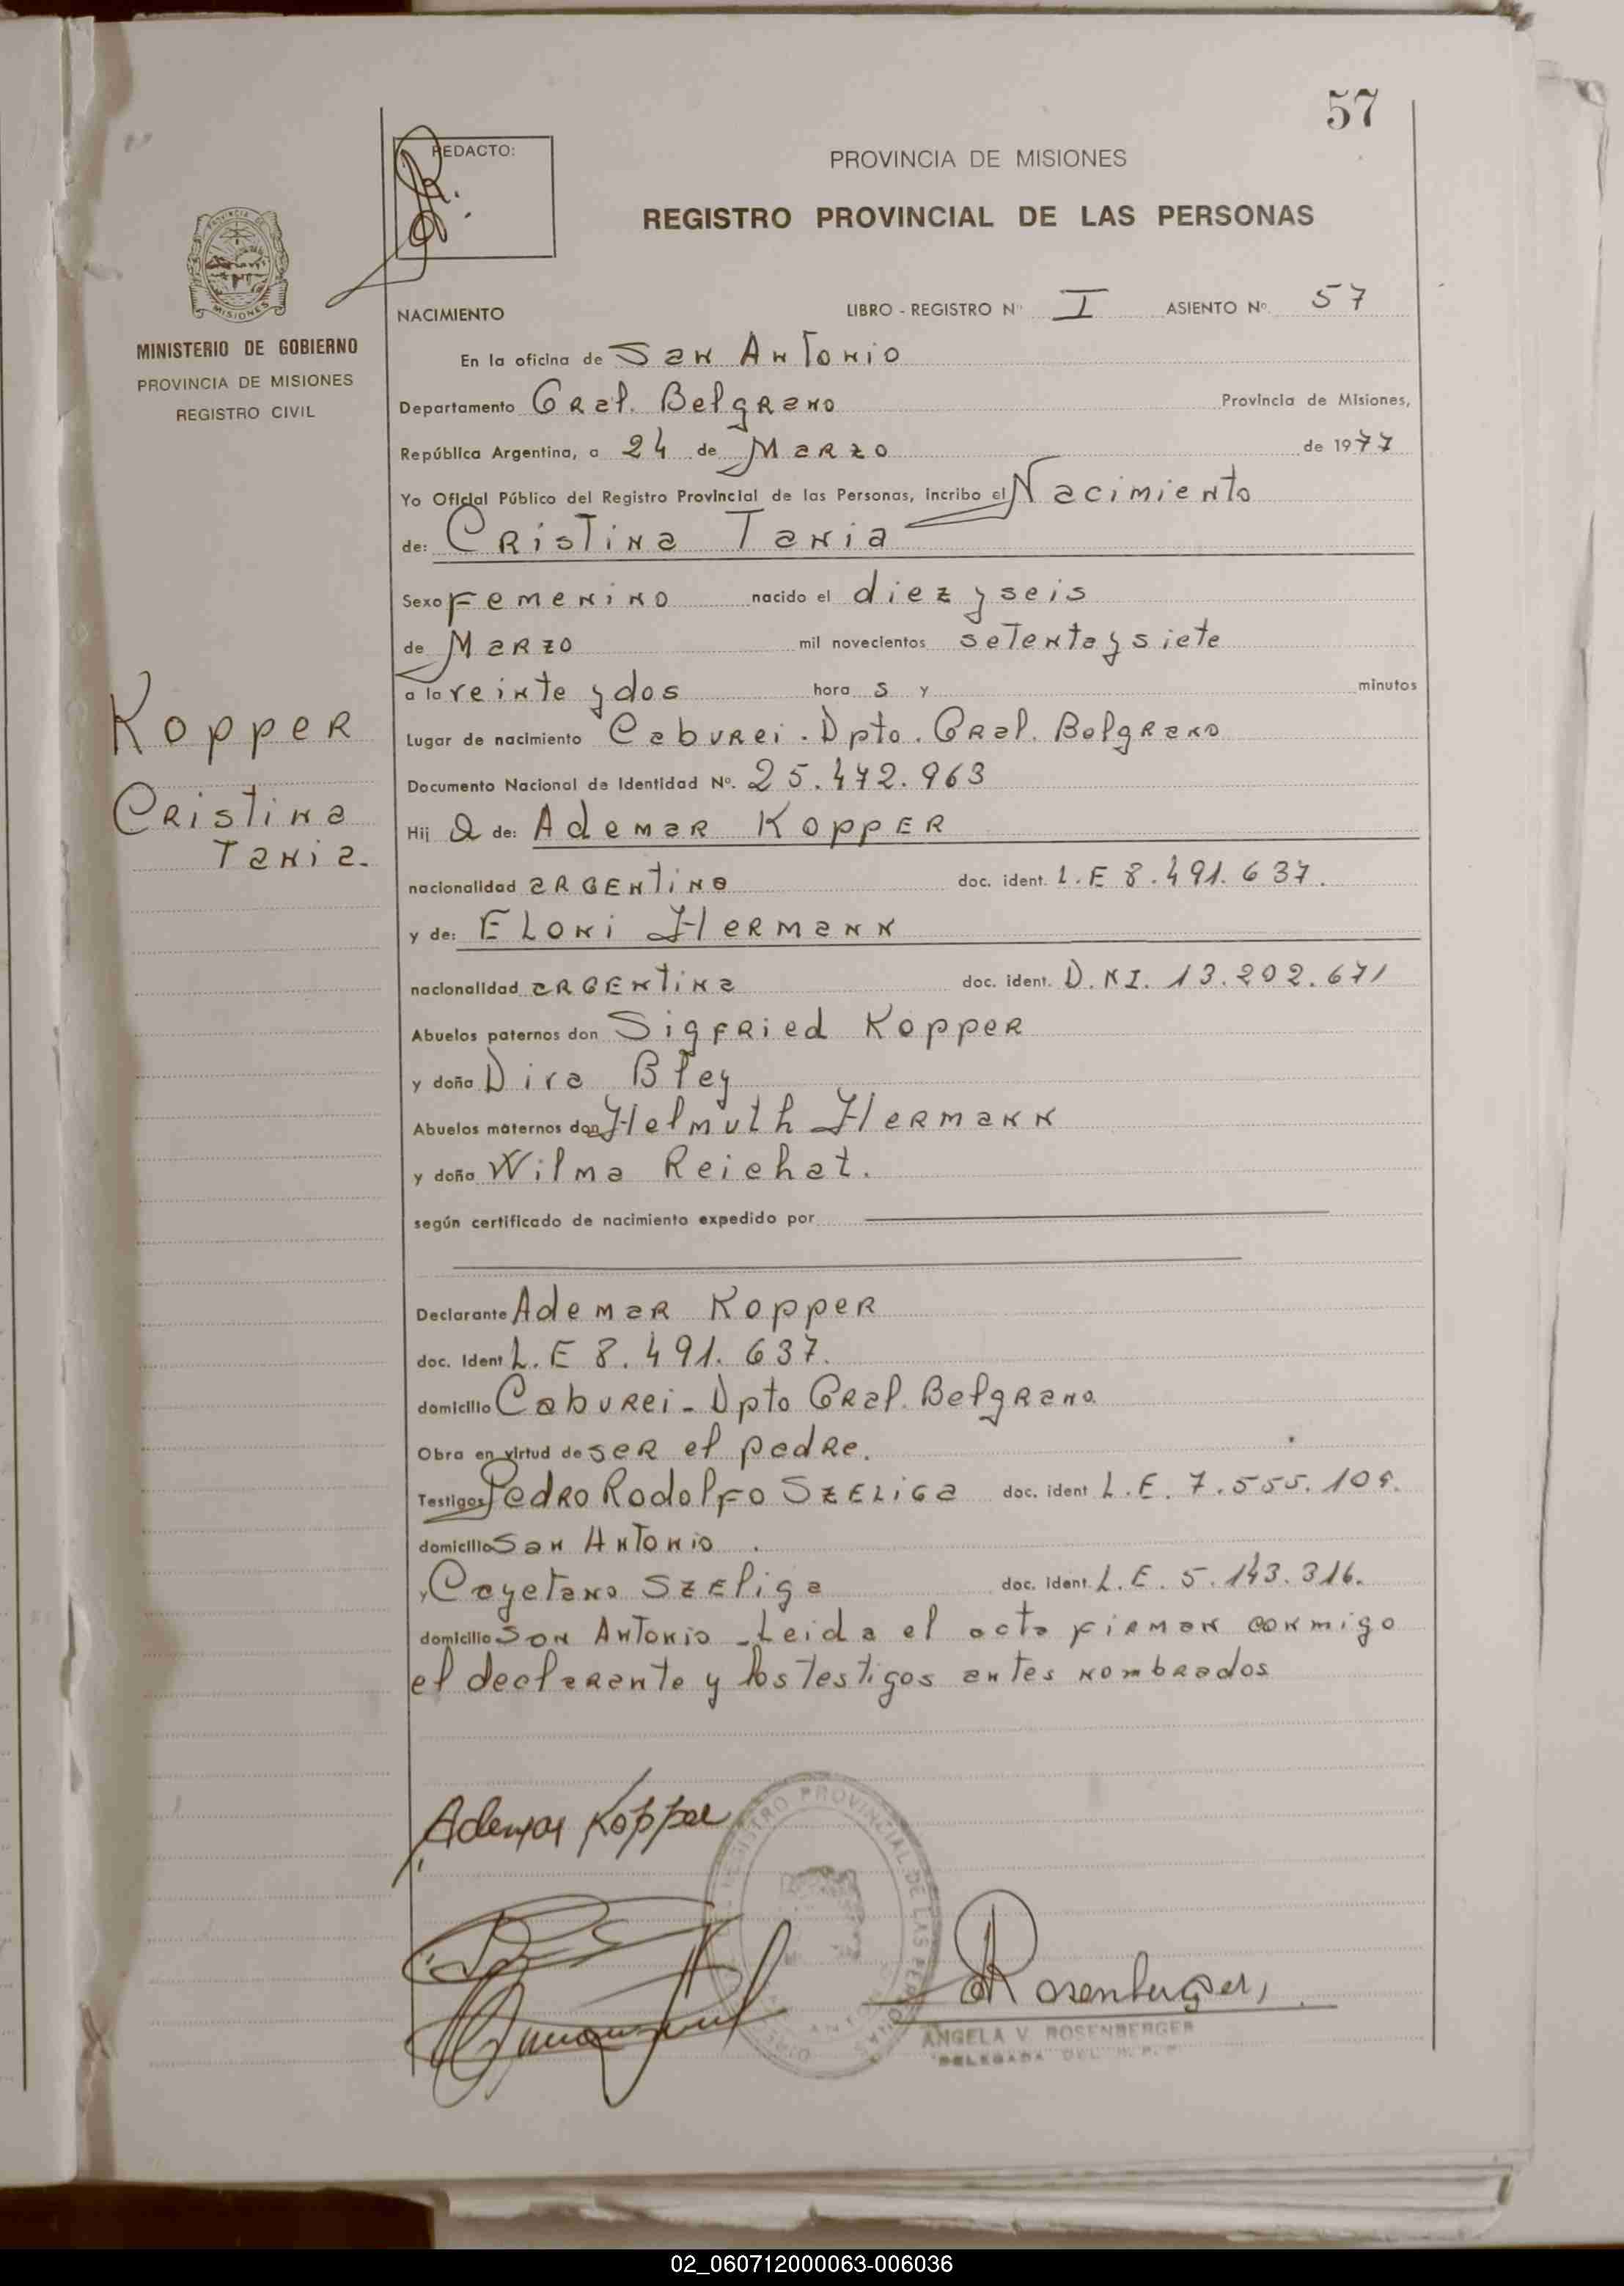 57
REDACTO:
PROVINCIA DE MISIONES
REGISTRO PROVINCIAL DE LAS PERSONAS
MISIONES
MINISTERIO DE GOBIERNO
PROVINCIA DE MISIONES
REGISTRO CIVIL
NACIMIENTO LIBRO - REGISTRO Nº I ASIENTO Nº 57
En la oficina de San Antonio
Departamento Gral. Belgrano Provincia de Misiones,
República Argentina, a 24 de Marzo de 1977
Yo Oficial Público del Registro Provincial de las Personas, incribo el Nacimiento
de: Cristina Tania
Sexo Femenino nacido el diez y seis
de Marzo mil novecientos setenta y siete
a la veinte y dos hora s y minutos
Kopper
Cristina
Tania.
Lugar de nacimiento Caburei. Dpto. Gral. Belgrano
Documento Nacional de Identidad Nº. 25.472.963
Hij a de: Ademar Kopper
nacionalidad argentino doc. ident. L.E 8.491.637.
y de: Eloni Hermann
nacionalidad argentina doc. ident. D.NI. 13.202.671
Abuelos paternos don Sigfried Kopper
y doña Dira Bley
Abuelos maternos don Helmuth Hermann
y doña Wilma Reichat.
según certificado de nacimiento expedido por
Declarante Ademar Kopper
doc. Ident L.E 8.491.637.
domicilio Caburei - Dpto Gral. Belgrano.
Obra en virtud de ser el padre.
Testigos Pedro Rodolfo Szeliga doc. ident L.E. 7.555.109.
domicilio San Antonio.
y Cayetano Szeliga doc. ident. L.E. 5.143.316.
domicilio San Antonio - Leida el acta firman conmigo
el declarante y los testigos antes nombrados
Ademar Kopper
REGISTRO PROVINCIAL DE LAS PERSONAS
Rosenberger
ANGELA V. ROSENBERGER
DELEGADA DEL R. P. P.
02_060712000063-006036